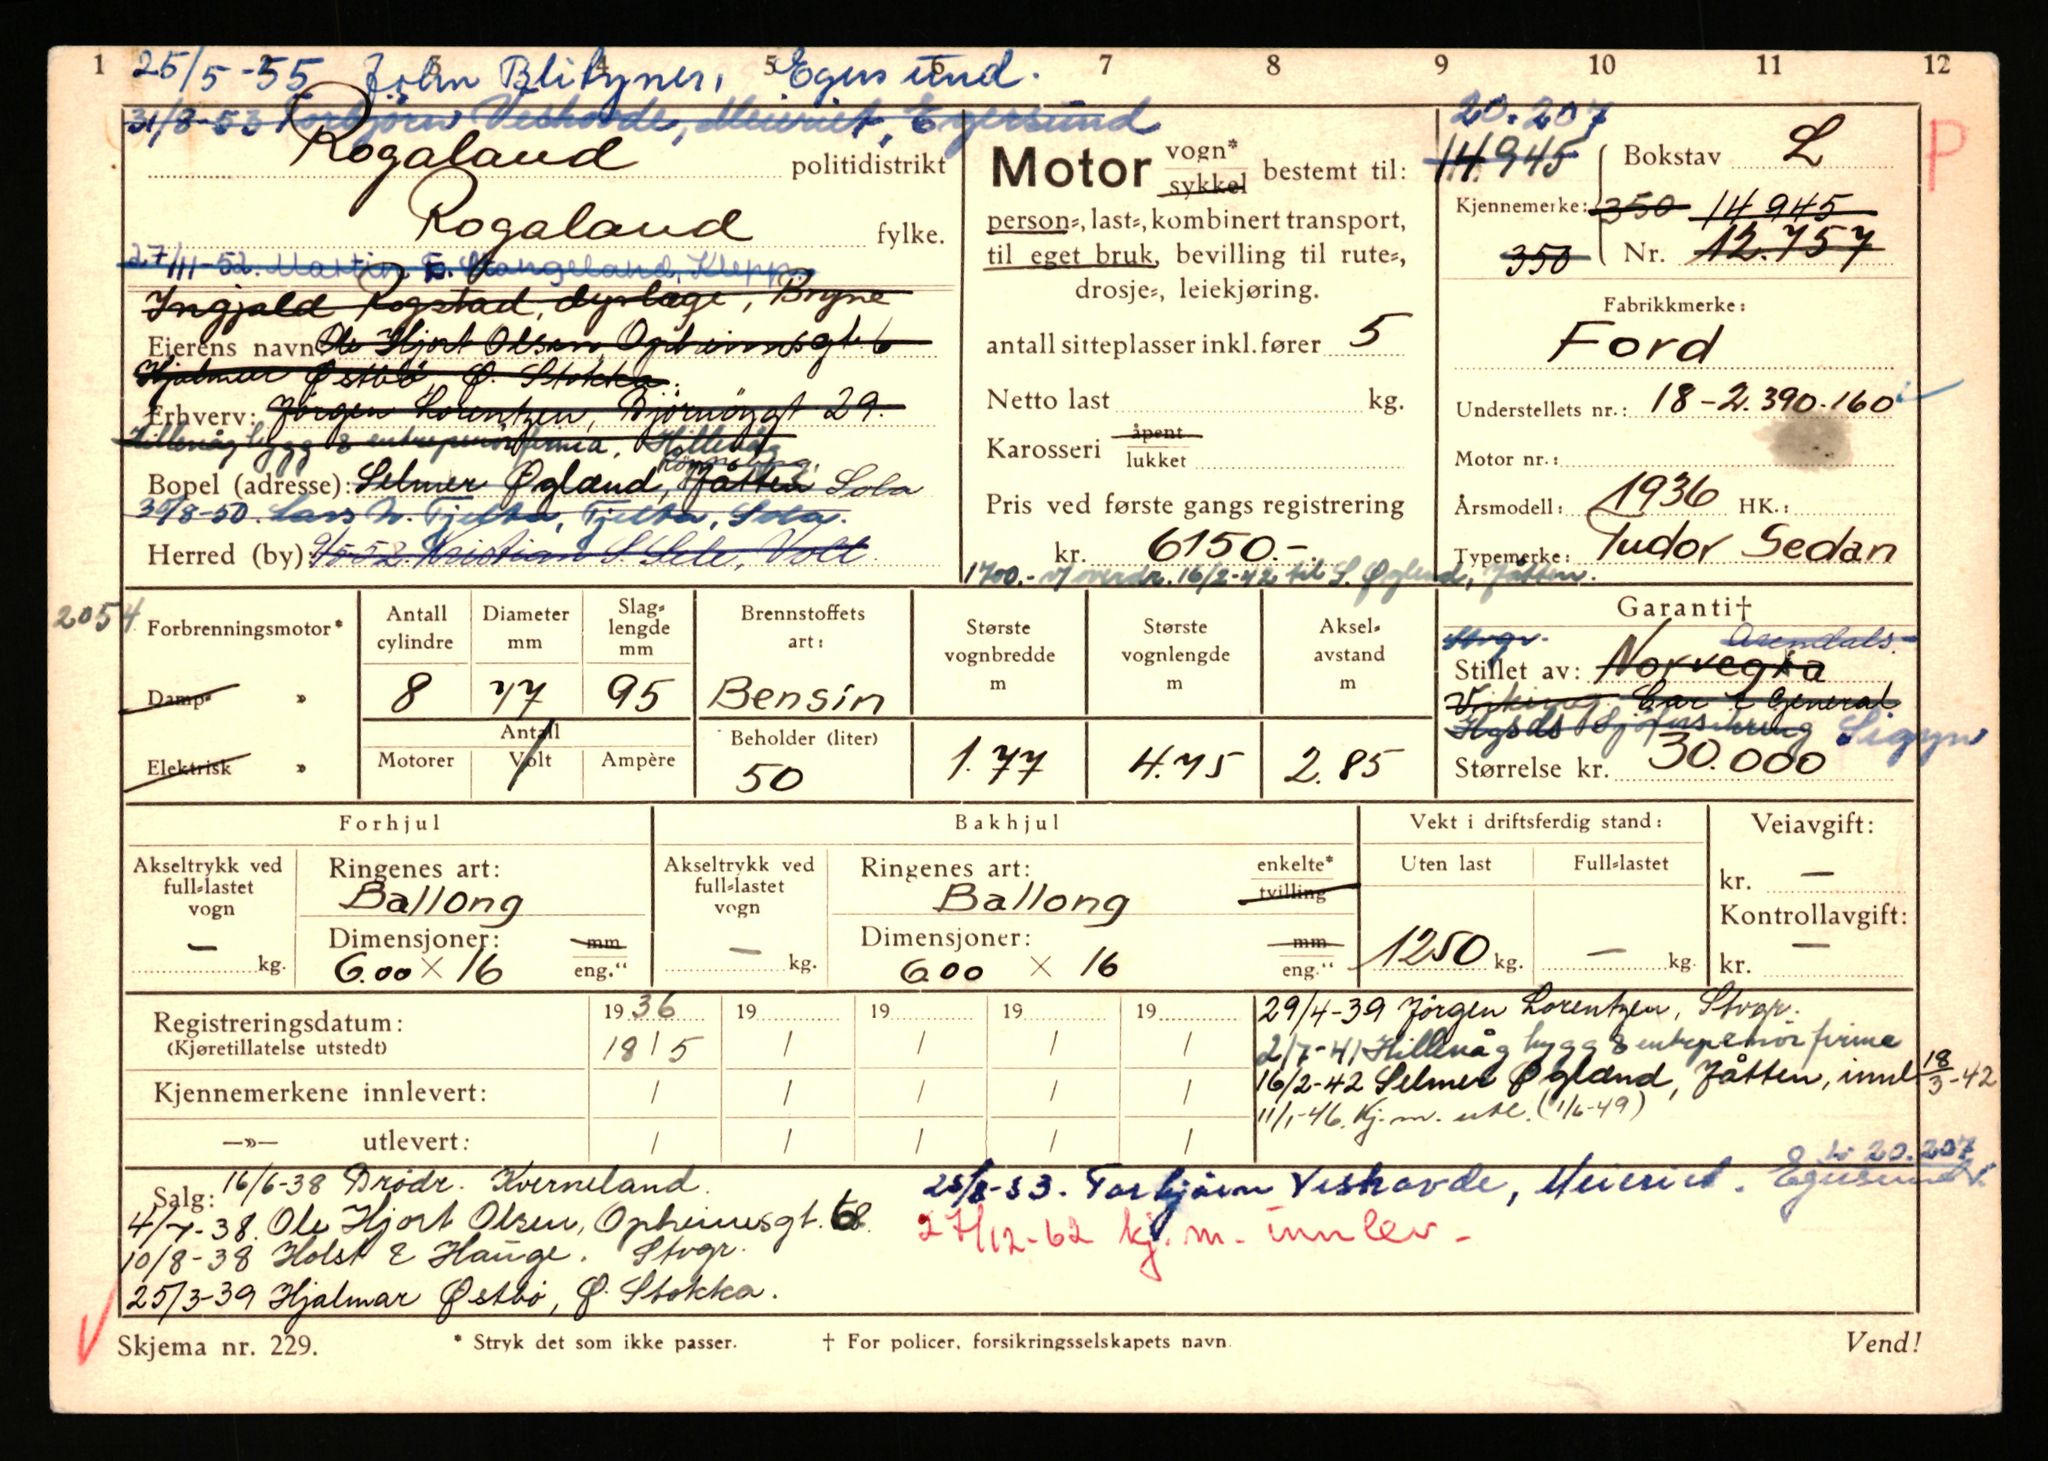 1 3 4 5 6 7 8 9 10 11 12
25/5-55 John Egersund.
31/8-53 Torbjörn Veshovde, Meieriet, Egersund
Rogaland politidistrikt
Rogaland fylke.
27/11-52. Martin Mangeland, Klepp.
Ingjald Rogstad, dyrlæge, Bryne
Eierens navn: Ole Hjort Olsen, Opheimsgt. 6
Hjalmar Østbö, Ø. Stokka.
Erhverv: Jörgen Lorentzen, Björnöygt 29.
Hillevåg bygg & entreprenörfirma, Hillevåg
Bopel (adresse): Selmer Øgland, Jåtten Sola
30/8-50. Lars N. Tjelta, Tjelta, Sola.
Herred (by) 9/5-52. Kristian S. Sele, Voll
Motor vogn* sykkel bestemt til:
person-, last-, kombinert transport,
til eget bruk, bevilling til rute-,
drosje-, leiekjøring.
antall sitteplasser inkl. fører 5
Netto last kg.
Karosseri åpent lukket
Pris ved første gangs registrering
kr. 6150.-
1700.- v/overdr. 16/2-42 til S. Øgland, Jåtten.
20.207
14.945 Bokstav L
Kjennemerke: 350 14945
350 Nr. 12.757
P
Fabrikkmerke:
Ford
Understellets nr.: 18-2.390.160
Motor nr.:
Årsmodell: 1936 HK.:
Typemerke: Tudor Sedan
2054
Forbrenningsmotor* Antall cylindre Diameter mm Slaglengde mm Brennstoffets art: Største vognbredde m Største vognlengde m Akselavstand m
Damp- » 8 77 95 Bensin
Antall
Elektrisk » Motorer Volt Ampère Beholder (liter) 50 1.77 4.75 2.85
Garanti†
Stvgr. Arendals.
Stillet av: Norvegia
Viking Car & General
Hgsds Sjöforsikring Sigyn
Størrelse kr. 30.000
Forhjul Bakhjul Vekt i driftsferdig stand: Veiavgift:
Akseltrykk ved full-lastet vogn Ringenes art: Akseltrykk ved full-lastet vogn Ringenes art: enkelte* tvilling Uten last Full-lastet kr. —
Ballong Ballong Kontrollavgift:
— kg. Dimensjoner: mm — kg. Dimensjoner: mm 1250 kg. — kg. —
6.00 × 16 eng." 600 × 16 eng." kr.
Registreringsdatum: 1936 19 19 19 19
(Kjøretillatelse utstedt) 18/5 / / / /
Kjennemerkene innlevert: / / / / /
—»— utlevert: / / / / /
29/4-39 Jörgen Lorentzen, Stvgr.
2/7-41 Hillevåg bygg & entreprenör firma
16/2-42 Selmer Øgland, Jåtten, innl. 18/3-42
11/1-46. Kj.m. utl. (1/6-49)
Salg: 16/6-38 Brödr. Kverneland.
4/7-38. Ole Hjort Olsen, Opheimsgt. 68.
10/8-38 Holst & Hauge. Stvgr.
25/3-39 Hjalmar Østbö, Ø. Stokka.
20.207
25/8-53. Torbjörn Veshovde, Meieriet. Egersund
27/12-62 kj. m. innlev-
Skjema nr. 229. * Stryk det som ikke passer. † For policer, forsikringsselskapets navn. Vend!